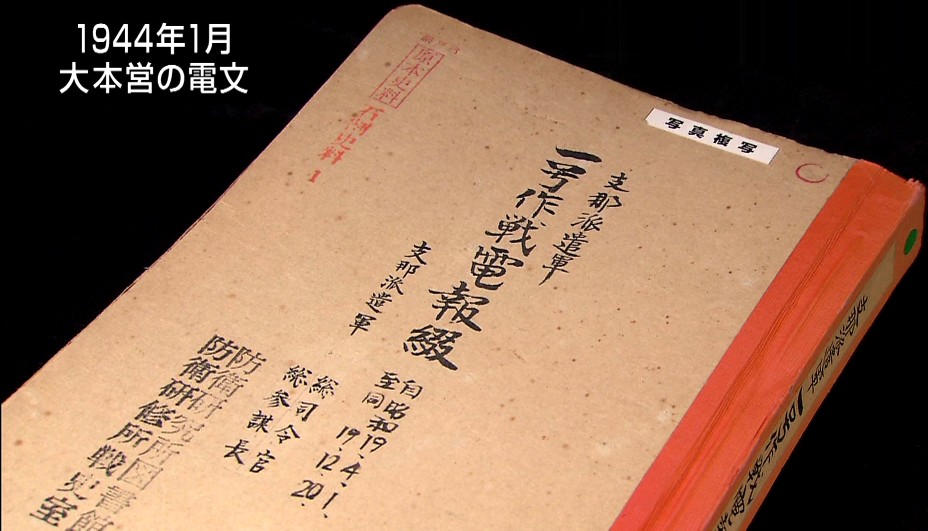 1944年1月
大本営の電文
写真複写
原本史料
史料
1
支那派遣軍
一号作戦電報綴
自昭和19.4.1.
至同19.12.20.
支那派遣軍
総司令官
総参謀長
防衛研究所図書館
防衛研修所戦史室
支那派遣軍